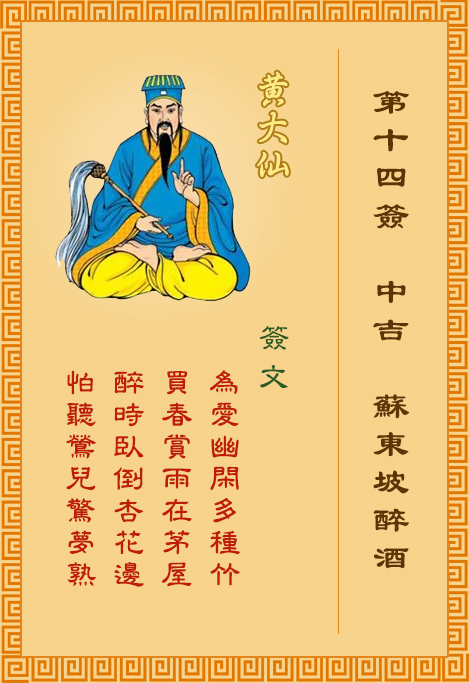 第十四簽 中吉 蘇東坡醉酒
黃大仙
簽文
為愛幽閑多種竹
買春賞雨在茅屋
醉時臥倒杏花邊
怕聽鶯兒驚夢熟